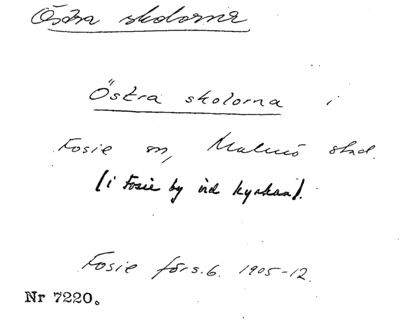 Östra skolorna
Östra skolorna i
Fosie sn, Malmö stad.
(i Fosie by vid kyrkan).
Fosie förs.b. 1905-12.
Nr 7220.